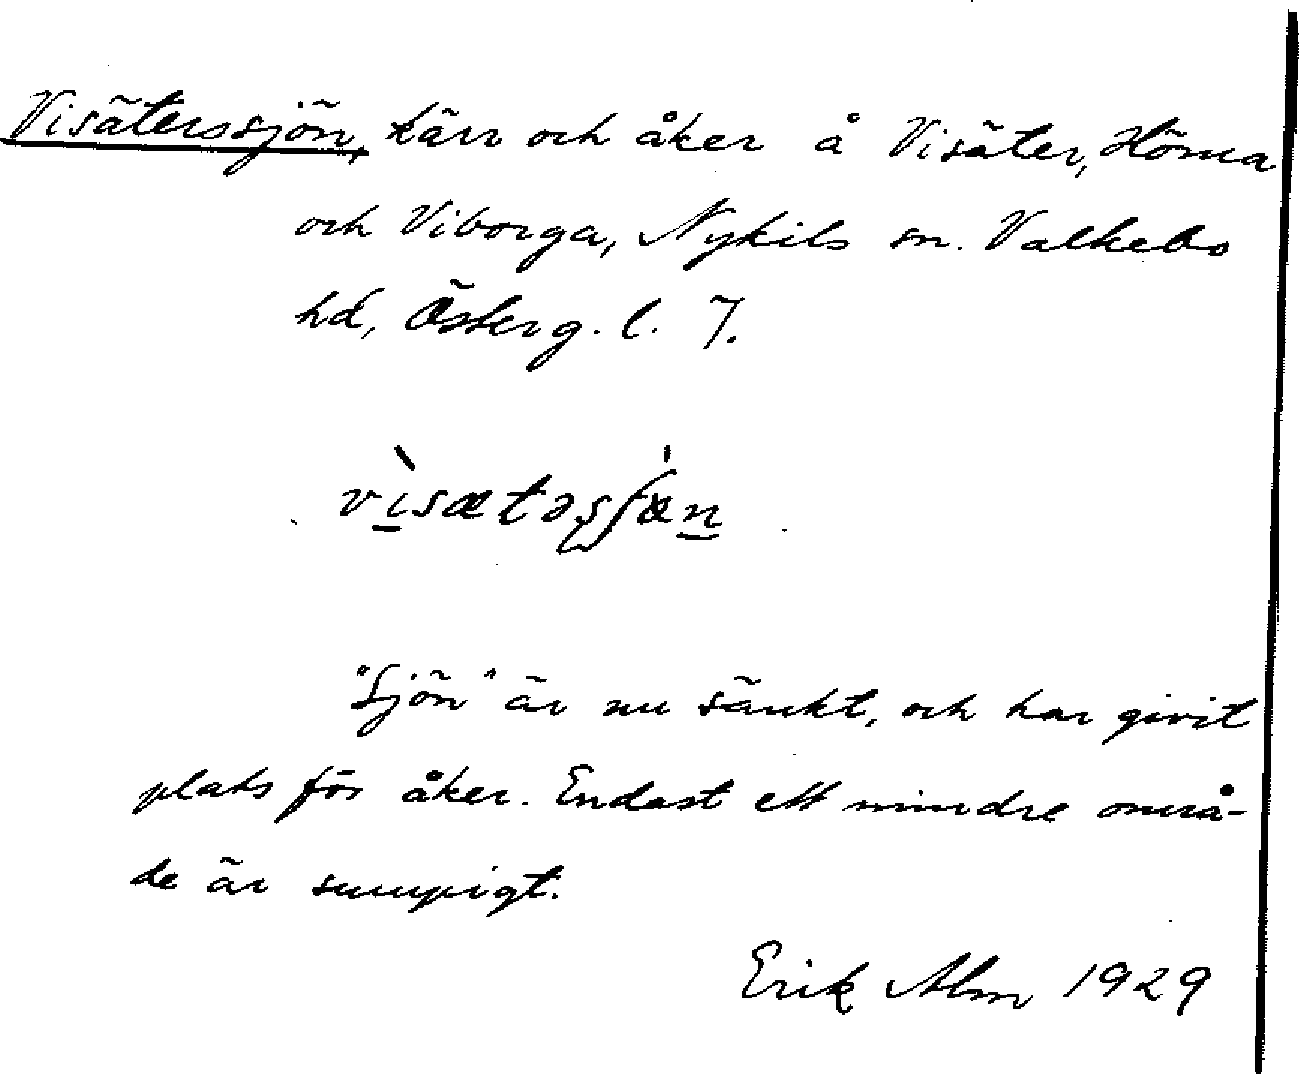 Visäterssjön, kärr och åker å Visäter, Hörna
och Viborga, Nykils sn. Valkebo
hd, Österg. l. 7.
vìsætəsʃæn
"Sjön" är nu sänkt, och har givit
plats för åker. Endast ett mindre områ-
de är sumpigt.
Erik Alm 1929